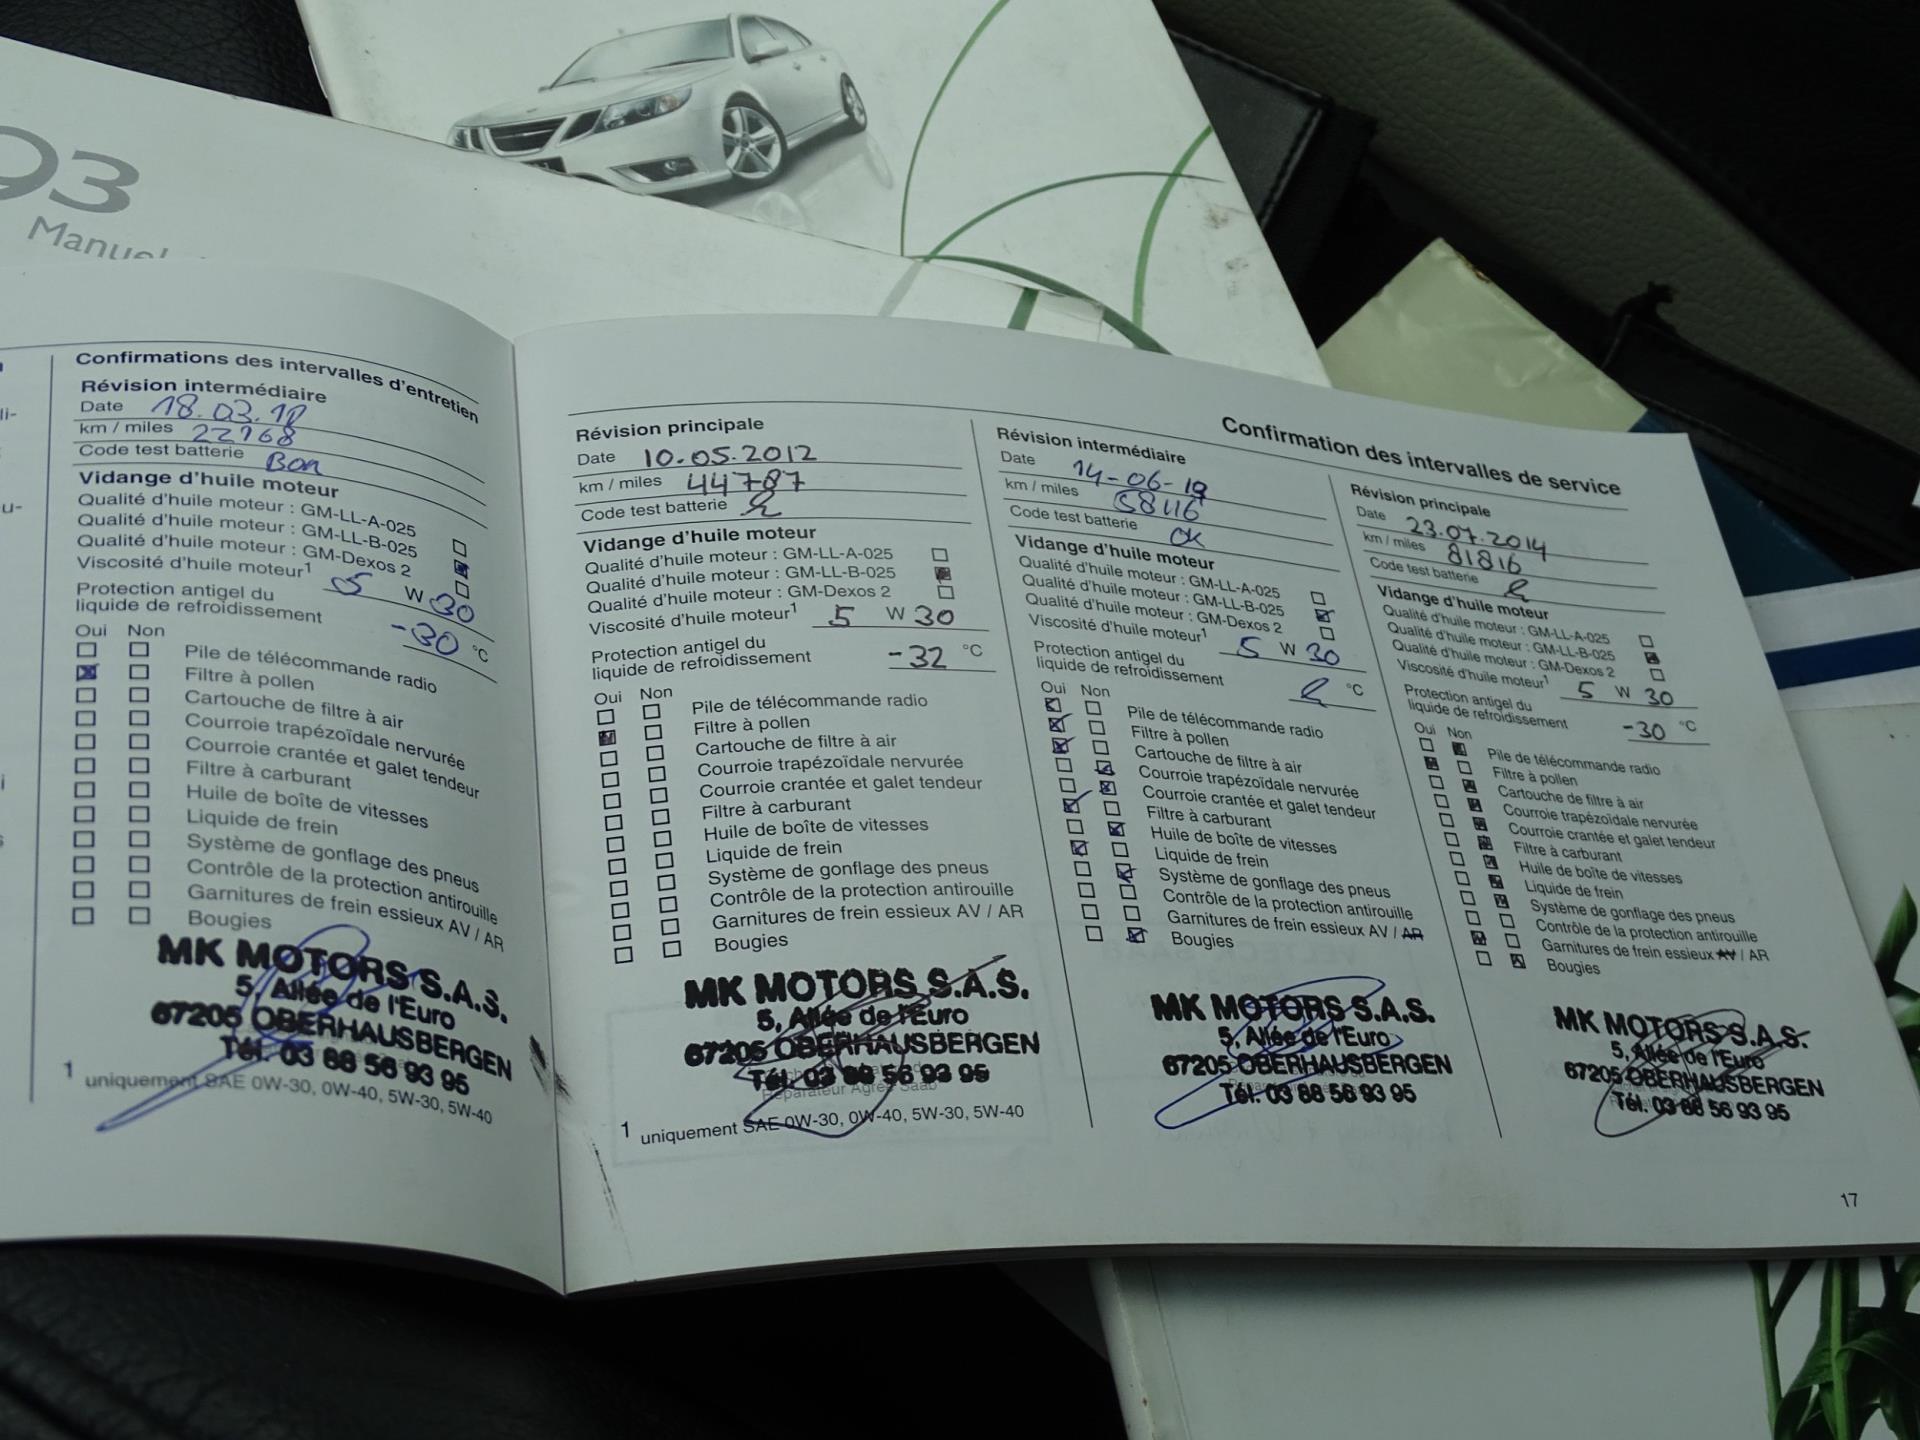 93
Manuel
Confirmations des intervalles d'entretien
Révision intermédiaire
Date 18.03.
km / miles 22768
Code test batterie Bon
Vidange d'huile moteur
Qualité d'huile moteur : GM-LL-A-025
Qualité d'huile moteur : GM-LL-B-025
Qualité d'huile moteur : GM-Dexos 2
Viscosité d'huile moteur1 05 W 30
Protection antigel du
liquide de refroidissement -30 °C
Oui Non
Pile de télécommande radio
Filtre à pollen
Cartouche de filtre à air
Courroie trapézoïdale nervurée
Courroie crantée et galet tendeur
Filtre à carburant
Huile de boîte de vitesses
Liquide de frein
Système de gonflage des pneus
Contrôle de la protection antirouille
Garnitures de frein essieux AV / AR
Bougies
MK MOTORS S.A.S.
5, Allée de l'Euro
67205 OBERHAUSBERGEN
Tél. 03 88 56 93 95
1 uniquement SAE 0W-30, 0W-40, 5W-30, 5W-40
Révision principale
Date 10.05.2012
km / miles 44787
Code test batterie
Vidange d'huile moteur
Qualité d'huile moteur : GM-LL-A-025
Qualité d'huile moteur : GM-LL-B-025
Qualité d'huile moteur : GM-Dexos 2
Viscosité d'huile moteur1 5 W 30
Protection antigel du
liquide de refroidissement -32 °C
Oui Non
Pile de télécommande radio
Filtre à pollen
Cartouche de filtre à air
Courroie trapézoïdale nervurée
Courroie crantée et galet tendeur
Filtre à carburant
Huile de boîte de vitesses
Liquide de frein
Système de gonflage des pneus
Contrôle de la protection antirouille
Garnitures de frein essieux AV / AR
Bougies
MK MOTORS S.A.S.
5, Allée de l'Euro
67205 OBERHAUSBERGEN
Tél. 03 88 56 93 95
Réparateur Agréé Saab
1 uniquement SAE 0W-30, 0W-40, 5W-30, 5W-40
Confirmation des intervalles de service
Révision intermédiaire
Date 14-06-
km / miles 58116
Code test batterie OK
Vidange d'huile moteur
Qualité d'huile moteur : GM-LL-A-025
Qualité d'huile moteur : GM-LL-B-025
Qualité d'huile moteur : GM-Dexos 2
Viscosité d'huile moteur1 5 W 30
Protection antigel du
liquide de refroidissement °C
Oui Non
Pile de télécommande radio
Filtre à pollen
Cartouche de filtre à air
Courroie trapézoïdale nervurée
Courroie crantée et galet tendeur
Filtre à carburant
Huile de boîte de vitesses
Liquide de frein
Système de gonflage des pneus
Contrôle de la protection antirouille
Garnitures de frein essieux AV / AR
Bougies
MK MOTORS S.A.S.
5, Allée de l'Euro
67205 OBERHAUSBERGEN
Tél. 03 88 56 93 95
Révision principale
Date 23.07.2014
km / miles 81816
Code test batterie
Vidange d'huile moteur
Qualité d'huile moteur : GM-LL-A-025
Qualité d'huile moteur : GM-LL-B-025
Qualité d'huile moteur : GM-Dexos 2
Viscosité d'huile moteur1 5 W 30
Protection antigel du
liquide de refroidissement -30 °C
Oui Non
Pile de télécommande radio
Filtre à pollen
Cartouche de filtre à air
Courroie trapézoïdale nervurée
Courroie crantée et galet tendeur
Filtre à carburant
Huile de boîte de vitesses
Liquide de frein
Système de gonflage des pneus
Contrôle de la protection antirouille
Garnitures de frein essieux AV / AR
Bougies
MK MOTORS S.A.S.
5, Allée de l'Euro
67205 OBERHAUSBERGEN
Tél. 03 88 56 93 95
17